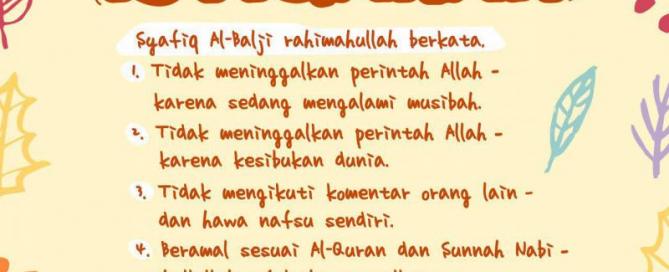 Syafiq Al-Balji rahimahullah berkata.
1. Tidak meninggalkan perintah Allah -
karena sedang mengalami musibah.
2. Tidak meninggalkan perintah Allah -
karena kesibukan dunia.
3. Tidak mengikuti komentar orang lain -
dan hawa nafsu sendiri.
4. Beramal sesuai Al-Quran dan Sunnah Nabi -